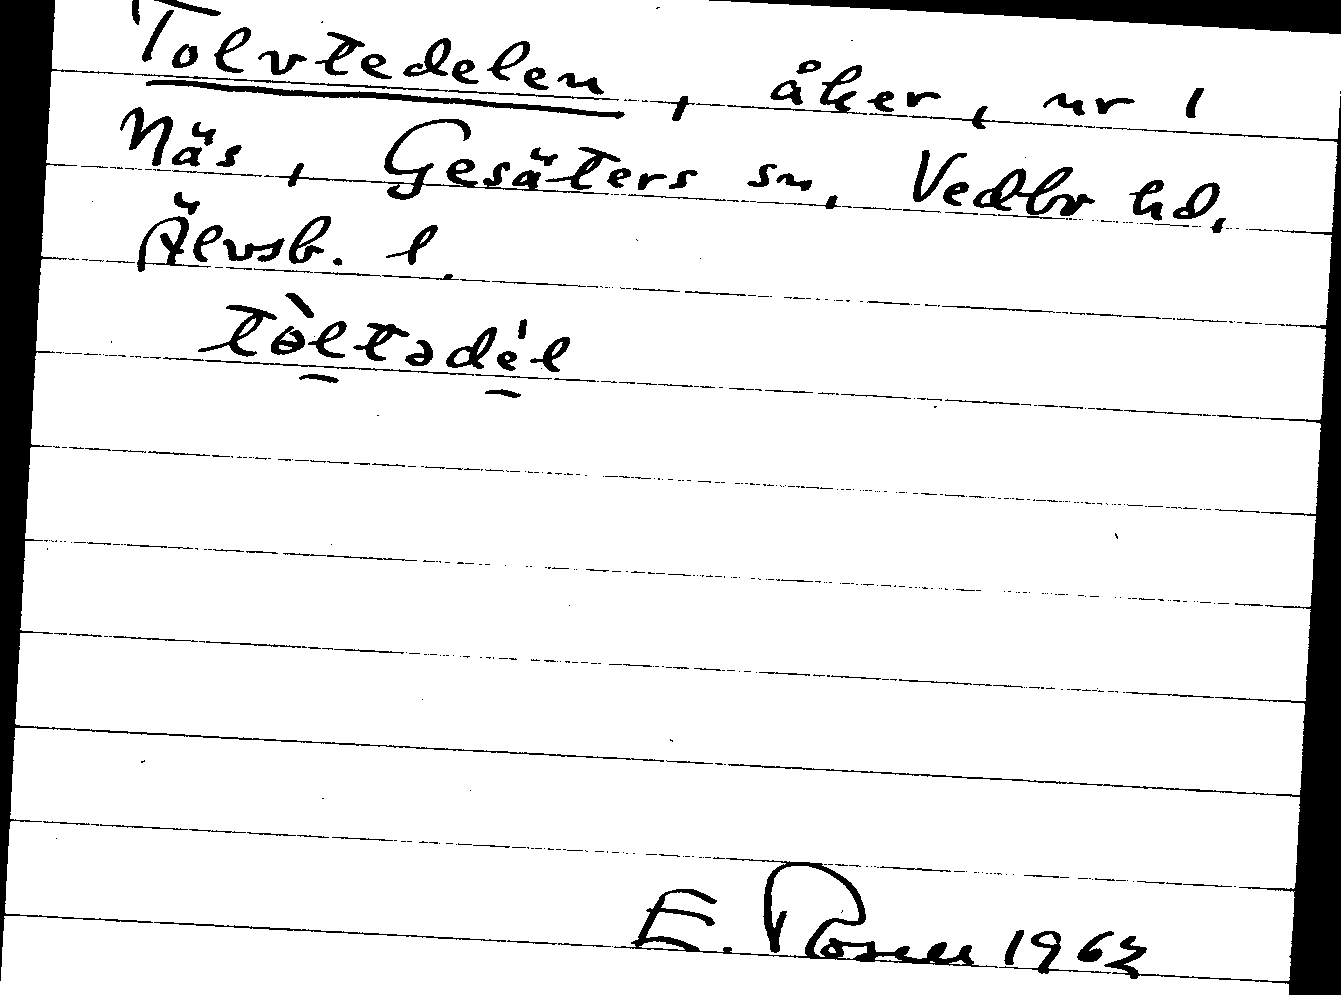 Tolvtedelen, åker, nr 1
Näs, Gesäters sn, Vedbo hd,
Älvsb. l.
tòltədé̱l
E. Rosell 1962